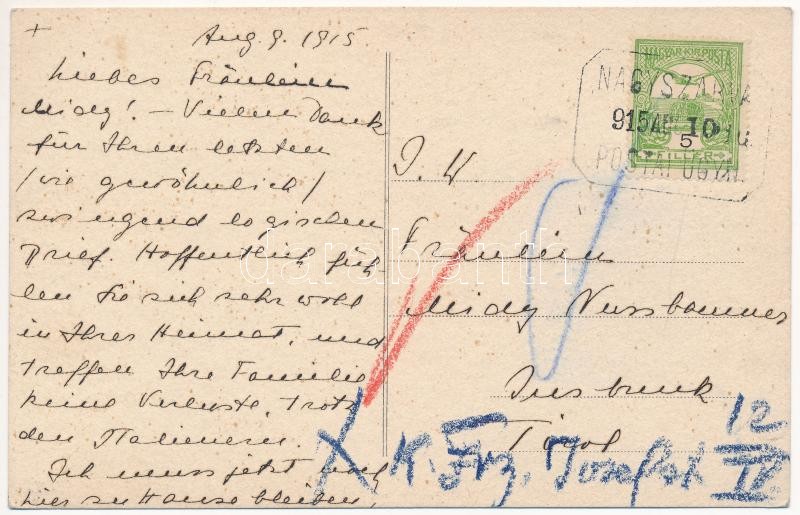 Aug. 9. 1915
Liebes Fräulein
Midy! – Vielen Dank
für Ihren letzten
/wie gewöhnlich/
zwingend logischen
Brief. Hoffentlich füh-
len Sie sich sehr wohl
in Ihrer Heimat, und
treffen Ihre Familie
keine Verluste, trotz
den Italienern.
Ich muss jetzt noch
hier zu Hause bleiben,
MAGYAR KIR. POSTA
5
FILLER
915 AU 10
I. W.
Fräulein
Midy Nussbaumer
Insbruck
Tirol
K. Frz. Josefstr
12
II
darabanth